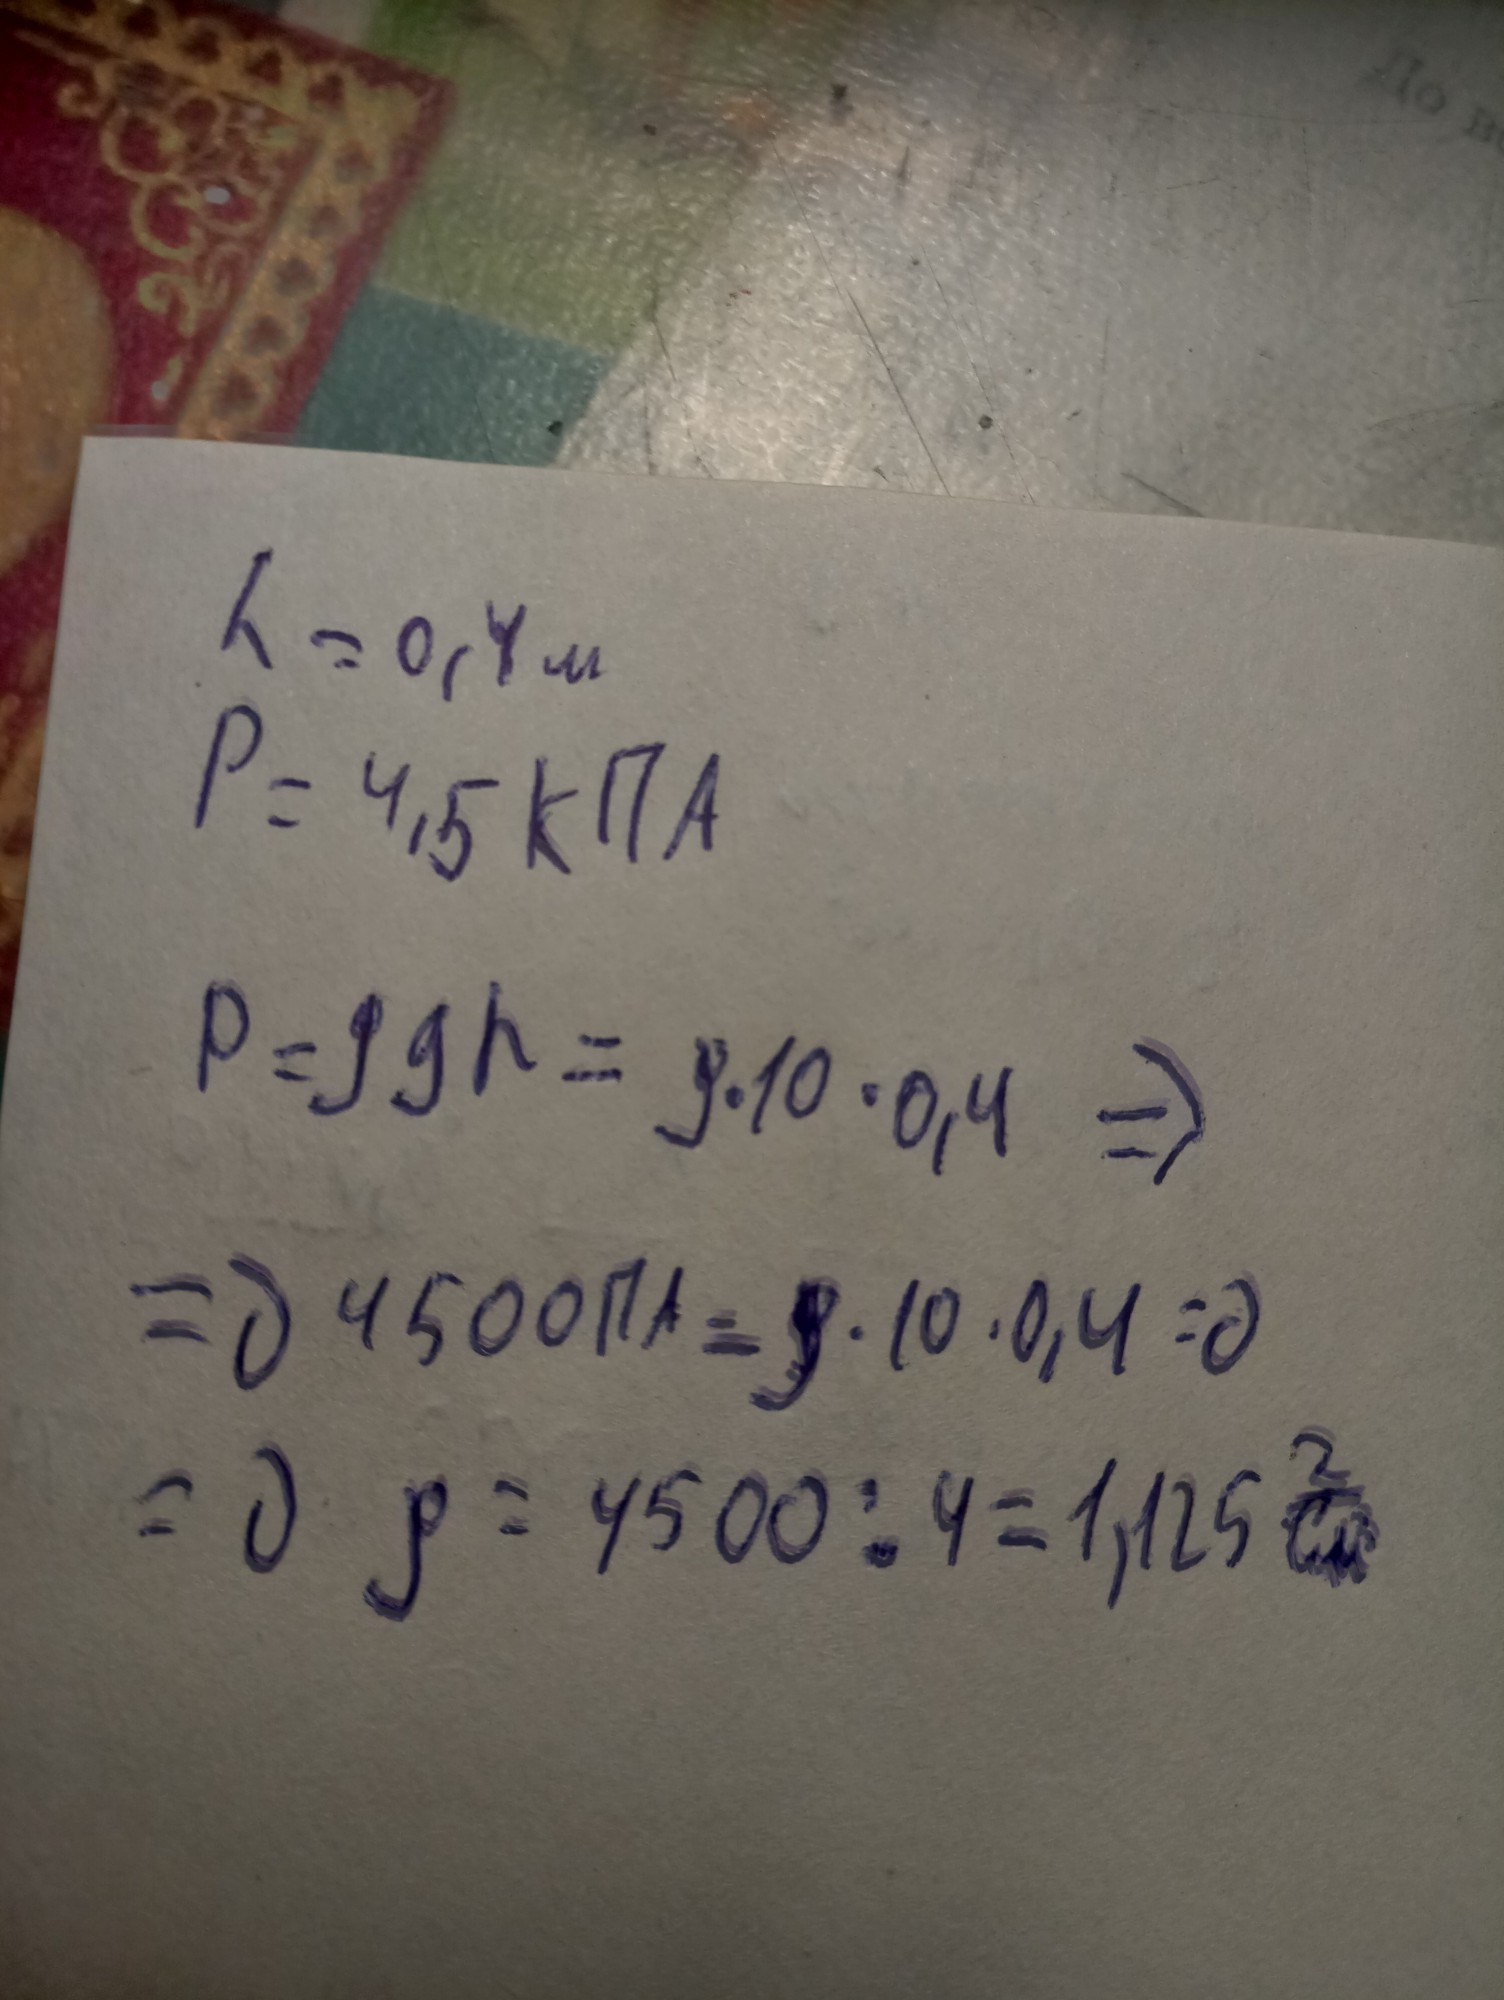 До
h = 0,4 м
P = 4,5 кПА
P = ρgh = ρ·10·0,4 =>
=> 4500ПА = ρ·10·0,4 =>
=> ρ = 4500 : 4 = 1,125 г